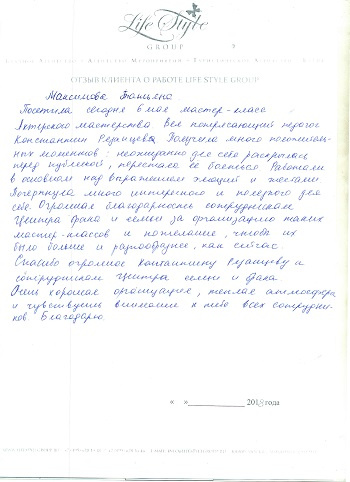 Life Style
GROUP
ОТЗЫВ КЛИЕНТА О РАБОТЕ LIFE STYLE GROUP
Максимова Татьяна
Посетила сегодня 6 мая мастер-класс
Актерского мастерства Вел потрясающий педагог
Константин Получила много положитель-
ных моментов: неожиданно для себя раскрылась
перед публикой, перестала её бояться Работали
в основном над выражением эмоций и жестами
Подчерпнула много интересного и полезного для
себя. Огромная благодарность сотрудникам
Центра брака и семьи за организацию таких
мастер-классов и пожелание, чтобы их
было больше и разнообразнее, как сейчас
Спасибо огромное Константину и
сотрудникам Центра семьи и брака
Очень хорошая организация, теплая атмосфера
и чувствуешь внимание к тебе всех сотрудни-
ков. Благодарю.
« » 2018 года